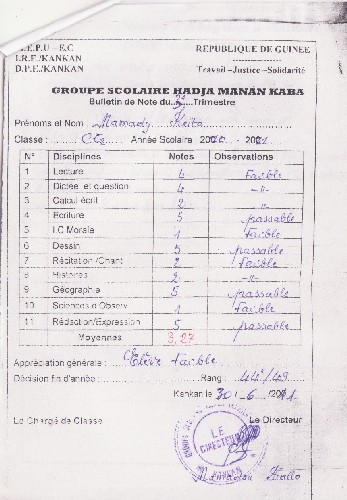 M.E.P.U – E.C REPUBLIQUE DE GUINEE
I.R.E./KANKAN
D.P.E./KANKAN Travail –Justice –Solidarité
GROUPE SCOLAIRE HADJA MANAN KABA
Bulletin de Note du 3è Trimestre
Prénoms et Nom : Mamady Keita
Classe : Année Scolaire 2020 - 2021
N° Disciplines Notes Observations
1 Lecture 4 Faible
2 Dictée et question 4 -//-
3 Calcul écrit 2 -//-
4 Ecriture 5 passable
5 I.C Morale 1 Faible
6 Dessin 5 passable
7 Récitation /Chant 2 Faible
8 Histoires 2 -//-
9 Géographie 5 passable
10 Sciences d'Observ. 1 Faible
11 Rédaction/Expression 5 passable
Moyennes 3,27
Appréciation générale : Elève Faible
Décision fin d'année : Rang : 44è/49
Kankan le 30 -6 /2021
Le Chargé de Classe Le Directeur
LE
DIRECTEUR
KANKAN